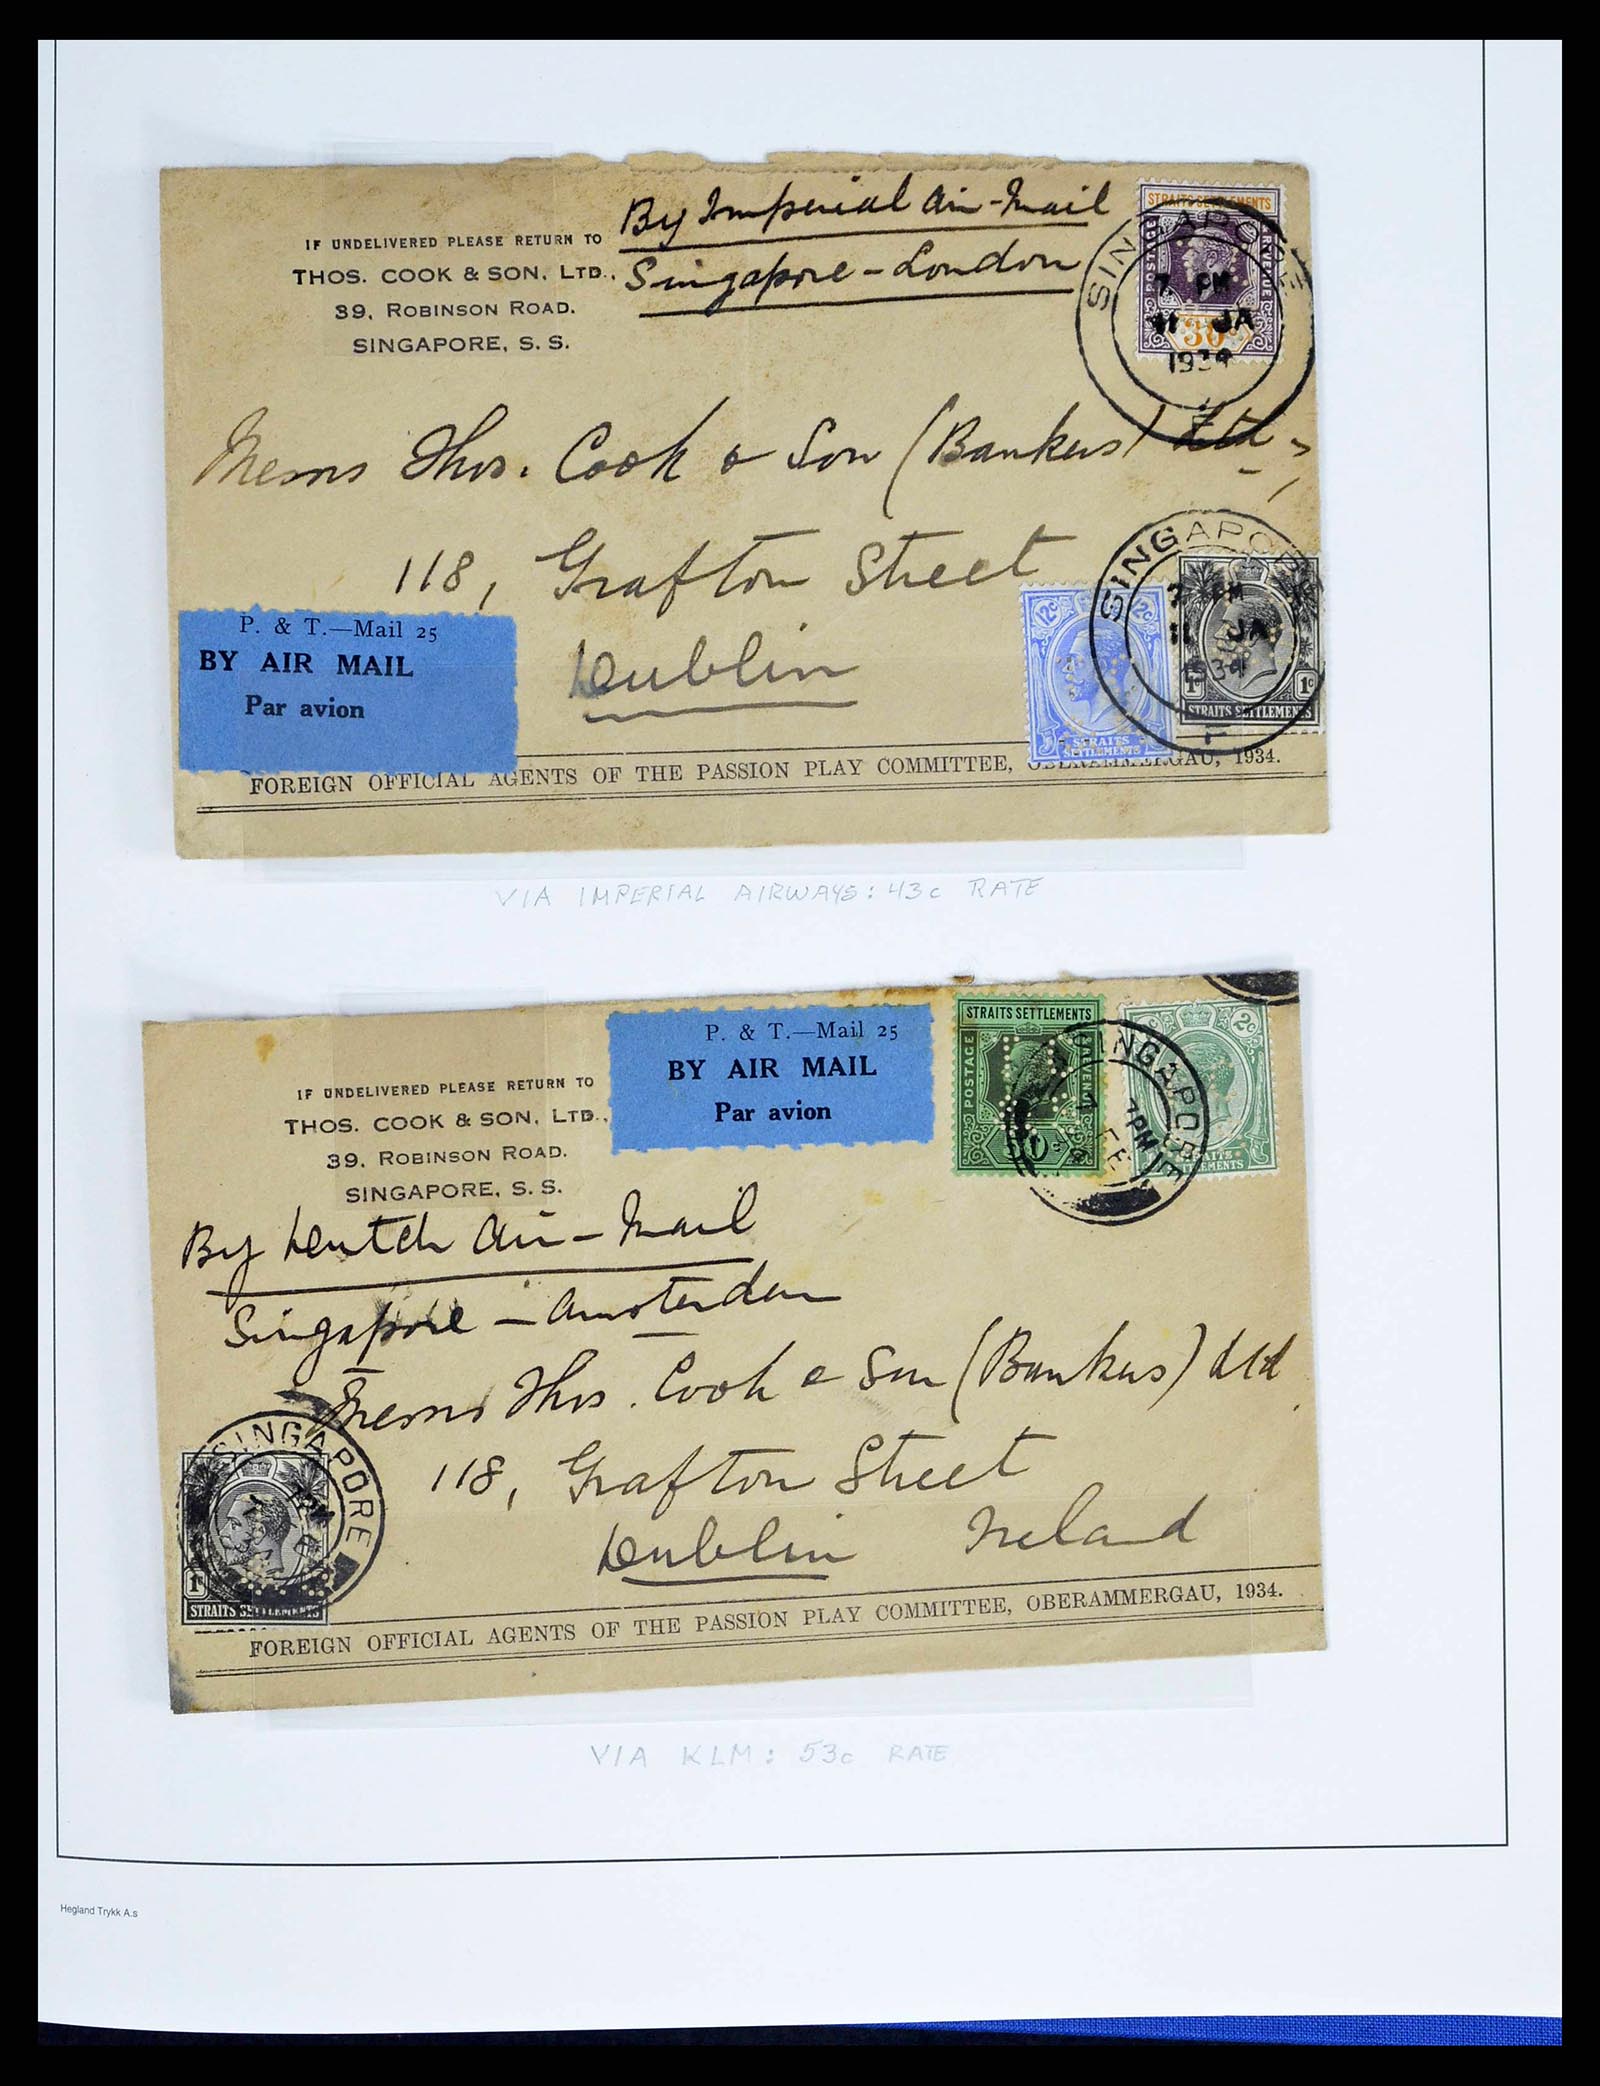 IF UNDELIVERED PLEASE RETURN TO
THOS. COOK & SON, LTD.,
39, ROBINSON ROAD.
SINGAPORE, S. S.
By Imperial Air-Mail
Singapore - London
STRAITS SETTLEMENTS
POSTAGE
REVENUE
30
SINGAPORE
7 PM
11 JA
1934
Messrs Thos. Cook & Son (Bankers) Ltd,
118, Grafton Street
Dublin
P. & T.—Mail 25
BY AIR MAIL
Par avion
12c 12c
STRAITS
SETTLEMENTS
SINGAPORE
7 PM
11 JA
1934
1c 1c
STRAITS SETTLEMENTS
FOREIGN OFFICIAL AGENTS OF THE PASSION PLAY COMMITTEE, OBERAMMERGAU, 1934.
VIA IMPERIAL AIRWAYS: 43c RATE
P. & T.—Mail 25
BY AIR MAIL
Par avion
STRAITS SETTLEMENTS
POSTAGE
REVENUE
SINGAPORE
7PM
FE
2c
STRAITS
SETTLEMENTS
IF UNDELIVERED PLEASE RETURN TO
THOS. COOK & SON, LTD.,
39, ROBINSON ROAD.
SINGAPORE, S. S.
By Dutch Air-Mail
Singapore - Amsterdam
Messrs Thos. Cook & Son (Bankers) Ltd
118, Grafton Street
Dublin Ireland
SINGAPORE
1c
STRAITS SETTLEMENTS
FOREIGN OFFICIAL AGENTS OF THE PASSION PLAY COMMITTEE, OBERAMMERGAU, 1934.
VIA KLM: 53c RATE
Hegland Trykk A.s